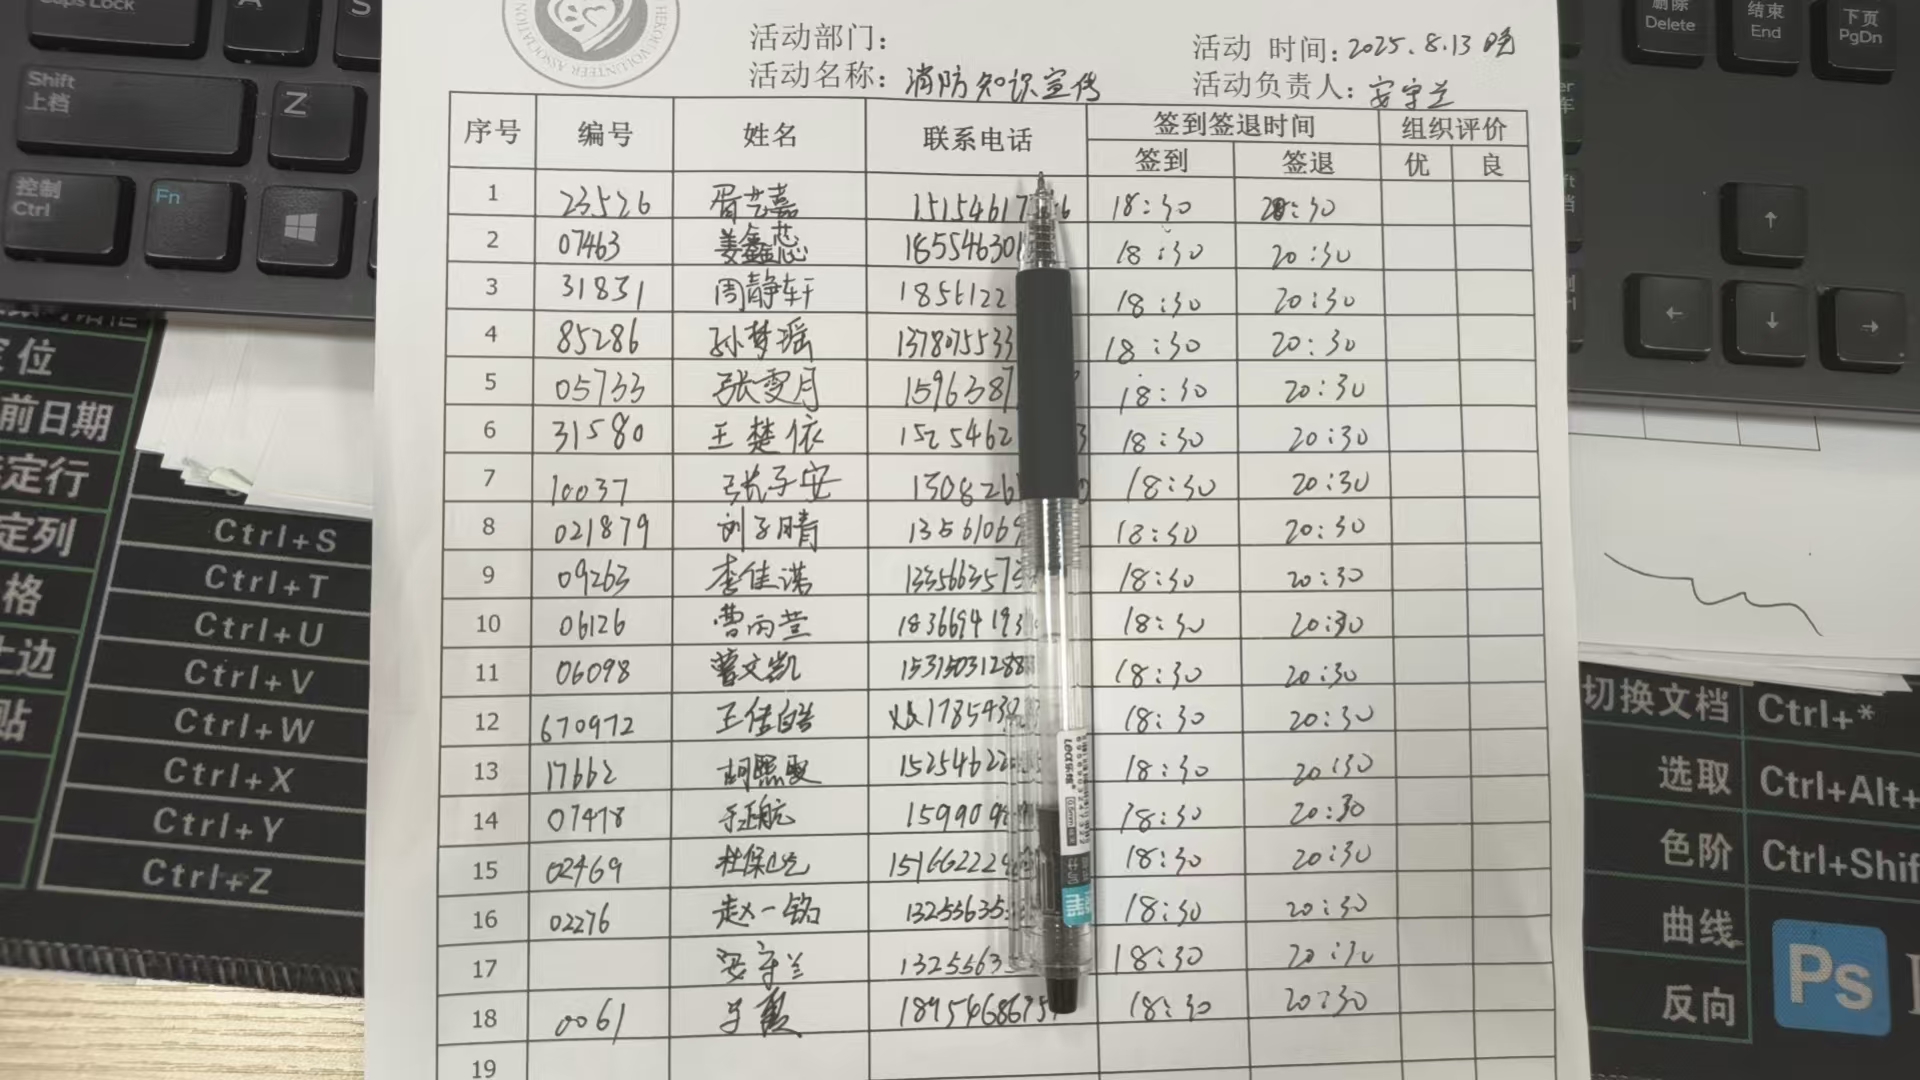 HEKOU VOLUNTEER ASSOCIATION
活动部门：
活动 时间：2025.8.13 晚
活动名称：消防知识宣传
活动负责人：安守兰
序号 编号 姓名 联系电话 签到签退时间 组织评价
签到 签退 优 良
1 23526 胥艺嘉 15154617 6 18:30 20:30
2 07463 姜鑫蕊 185546301 18:30 20:30
3 31831 周静轩 1856122 18:30 20:30
4 85286 孙梦瑶 1378075533 18:30 20:30
5 05733 张雯月 1596387 18:30 20:30
6 31580 王楚依 1525462 3 18:30 20:30
7 10037 张子安 130826 0 18:30 20:30
8 021879 刘子晴 13561069 18:30 20:30
9 09263 李佳诺 1335663573 18:30 20:30
10 06126 曹丙萱 1836694193 18:30 20:30
11 06098 曹文凯 15315031288 18:30 20:30
12 670972 王佳皓 1785432 18:30 20:30
13 17662 胡熙雯 152546220 18:30 20:30
14 07478 航 1599094 18:30 20:30
15 02469 杜保 151662229 18:30 20:30
16 02276 赵一铭 132556355 18:30 20:30
17 安守兰 13255635 18:30 20:30
18 0061 18954686757 18:30 20:30
19
Caps Lock
A
S
Shift
上档
Z
控制
Ctrl
Fn
删除
Delete
结束
End
下页
PgDn
↑
← ↓ →
定位
前日期
定行
定列
格
上边
贴
Ctrl+S
Ctrl+T
Ctrl+U
Ctrl+V
Ctrl+W
Ctrl+X
Ctrl+Y
Ctrl+Z
切换文档 Ctrl+*
选取 Ctrl+Alt+
色阶 Ctrl+Shif
曲线
反向
Ps
0.5mm